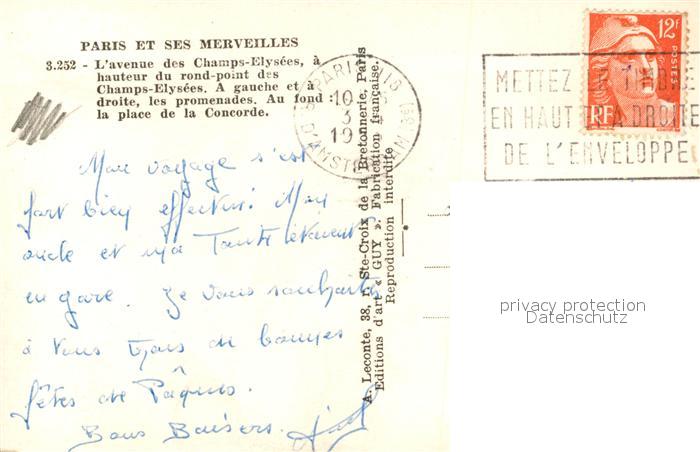 PARIS ET SES MERVEILLES
3.252 - L'avenue des Champs-Elysées, à
hauteur du rond-point des
Champs-Elysées. A gauche et à
droite, les promenades. Au fond :
la place de la Concorde.
Mon voyage s'est
fort bien effectué! Mon
oncle et ma Tante étaient
en gare. Je vous souhaite
à vous tous de bonnes
fêtes de Pâques.
Bons Baisers.
A. Leconte, 38, r. Ste-Croix de la Bretonnerie, Paris
Editions d'art « GUY ». Fabrication française.
Reproduction interdite
PARIS VIII
10
3
19
D'AMSTERDAM
12F
POSTES
RF
METTEZ LE TIMBRE
EN HAUT ET A DROITE
DE L'ENVELOPPE
privacy protection
Datenschutz